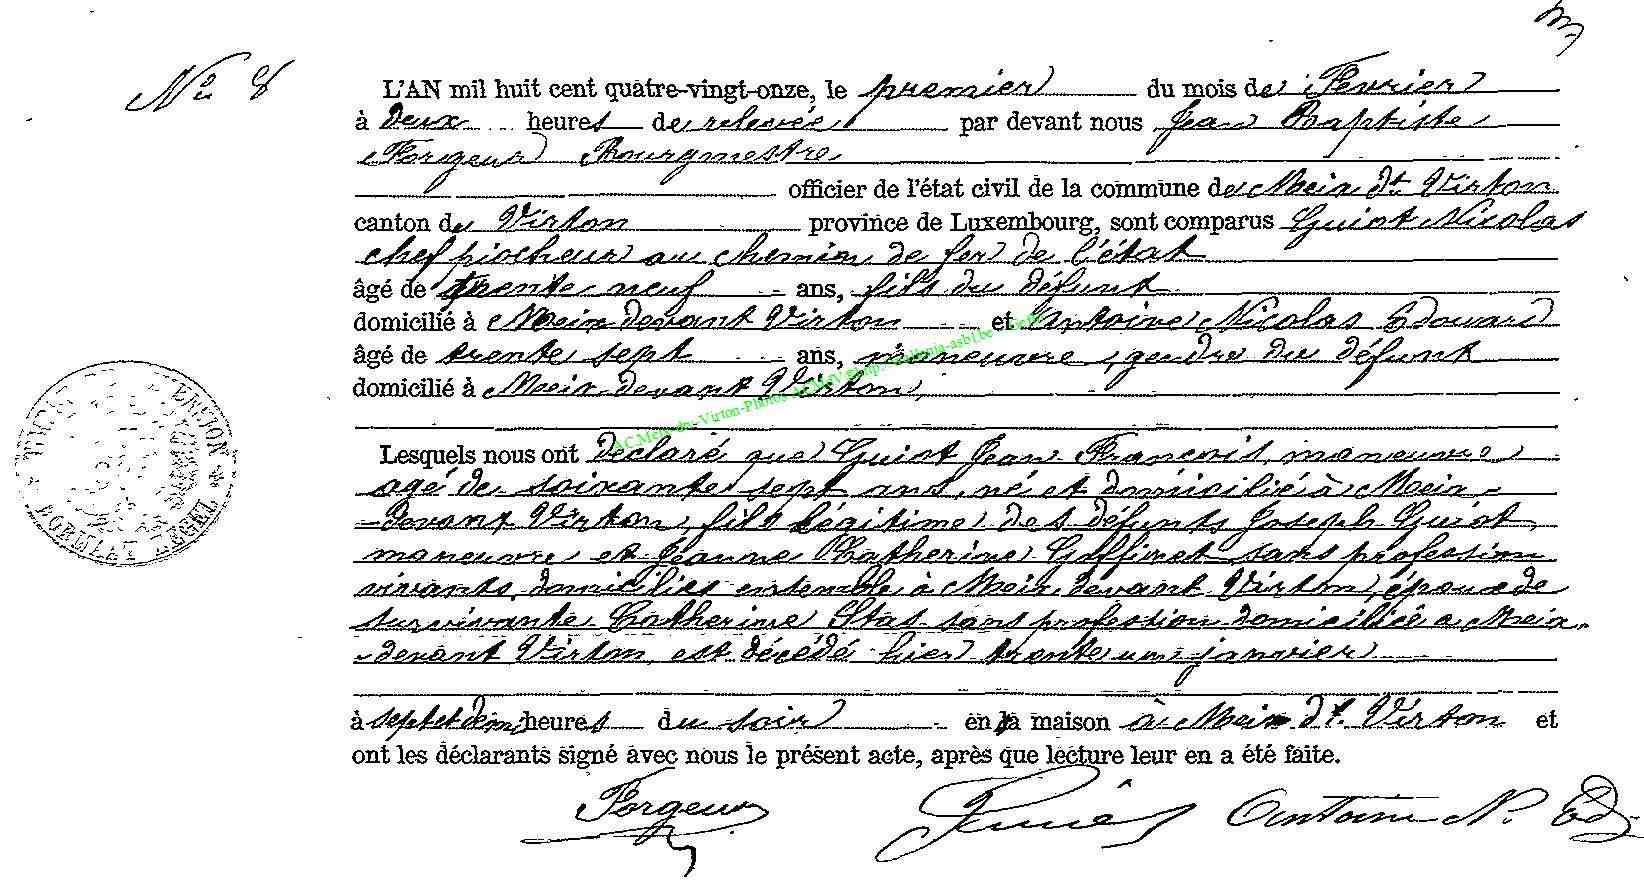 No 8
L'AN mil huit cent quatre-vingt-onze, le premier du mois de Fevrier
à deux heures de relevée par devant nous Jean Baptiste
Forgeur Bourgmestre
officier de l'état civil de la commune de Meix dt Virton
canton de Virton province de Luxembourg, sont comparus Guiot Nicolas
chef piocheur au chemin de fer de l'état
âgé de trente neuf ans, fils du défunt
domicilié à Meix devant Virton et Antoine Nicolas Edouard
âgé de trente sept ans, maneuvre, gendre du défunt
domicilié à Meix-devant Virton,
Lesquels nous ont déclaré que Guiot Jean François, maneuvre
agé de soixante sept ans, né et domicilié à Meix-
-devant Virton, fils légitime des défunts Joseph Guiot
maneuvre et Jeanne Catherine Goffinet sans profession
vivants, domiciliés ensemble à Meix devant Virton, époux de
survivante Catherine Stas sans profession domiciliée a Meix-
-devant Virton est décédé hier trente un janvier
à sept et demi heures du soir en la maison à Meix dt. Virton et
ont les déclarants signé avec nous le présent acte, après que lecture leur en a été faite.
Forgeur Antoine N. Ed